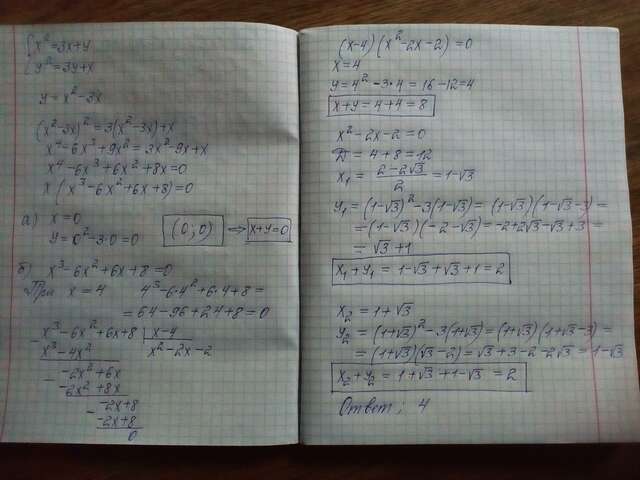 {x² = 3x+y
{y² = 3y+x
y = x² - 3x
(x² - 3x)² = 3(x² - 3x) + x
x⁴ - 6x³ + 9x² = 3x² - 9x + x
x⁴ - 6x³ + 6x² + 8x = 0
x (x³ - 6x² + 6x + 8) = 0
а) x = 0
y = 0² - 3·0 = 0
(0; 0) ⇒ x+y=0
б) x³ - 6x² + 6x + 8 = 0
При x = 4 4³ - 6·4² + 6·4 + 8 =
= 64 - 96 + 24 + 8 = 0
- x³ - 6x² + 6x + 8 | x - 4
x³ - 4x² x² - 2x - 2
- -2x² + 6x
-2x² + 8x
- -2x + 8
-2x + 8
0
(x-4)(x² - 2x - 2) = 0
x = 4
y = 4² - 3·4 = 16 - 12 = 4
x + y = 4 + 4 = 8
x² - 2x - 2 = 0
D = 4 + 8 = 12
x₁ = (2 - 2√3)/2 = 1 - √3
y₁ = (1-√3)² - 3(1-√3) = (1-√3)(1-√3-3) =
= (1-√3)(-2-√3) = -2+2√3-√3+3 =
= √3 + 1
x₁ + y₁ = 1 - √3 + √3 + 1 = 2
x₂ = 1 + √3
y₂ = (1+√3)² - 3(1+√3) = (1+√3)(1+√3-3) =
= (1+√3)(√3-2) = √3 + 3 - 2 - 2√3 = 1 - √3
x₂ + y₂ = 1 + √3 + 1 - √3 = 2
Ответ: 4